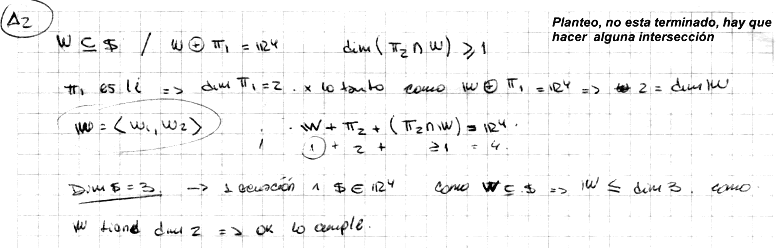 A2
Planteo, no esta terminado, hay que
hacer alguna intersección
W ⊆ $ / W ⊕ π1 = R4 dim (π2 ∩ W) ≥ 1
π1 es li => dim π1 = 2 . x lo tanto como W ⊕ π1 = R4 => 2 = dim W
W = <w1, w2> ; · W + π2 + (π2 ∩ W) = R4 .
1 + 2 + ≥1 = 4 .
Dim $ = 3 . → 1 ecuación ∧ $ ∈ R4 como W ⊆ $ => W ≤ dim 3 . como
W tiene dim 2 => ok lo cumple .